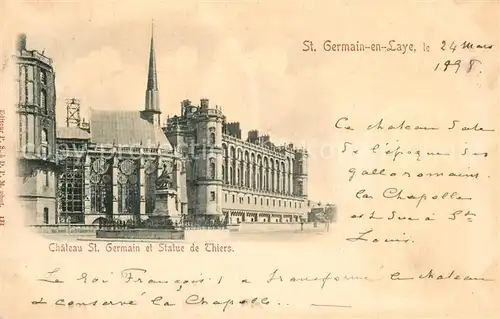 St. Germain-en-Laye, le 24 Mars
1898.
Ce chateau date
de l'époque des
gallo romains.
La Chapelle
est due à St
Louis.
Château St. Germain et Statue de Thiers.
Le roi François 1 a transformé le chateau
& conservé la Chapelle...